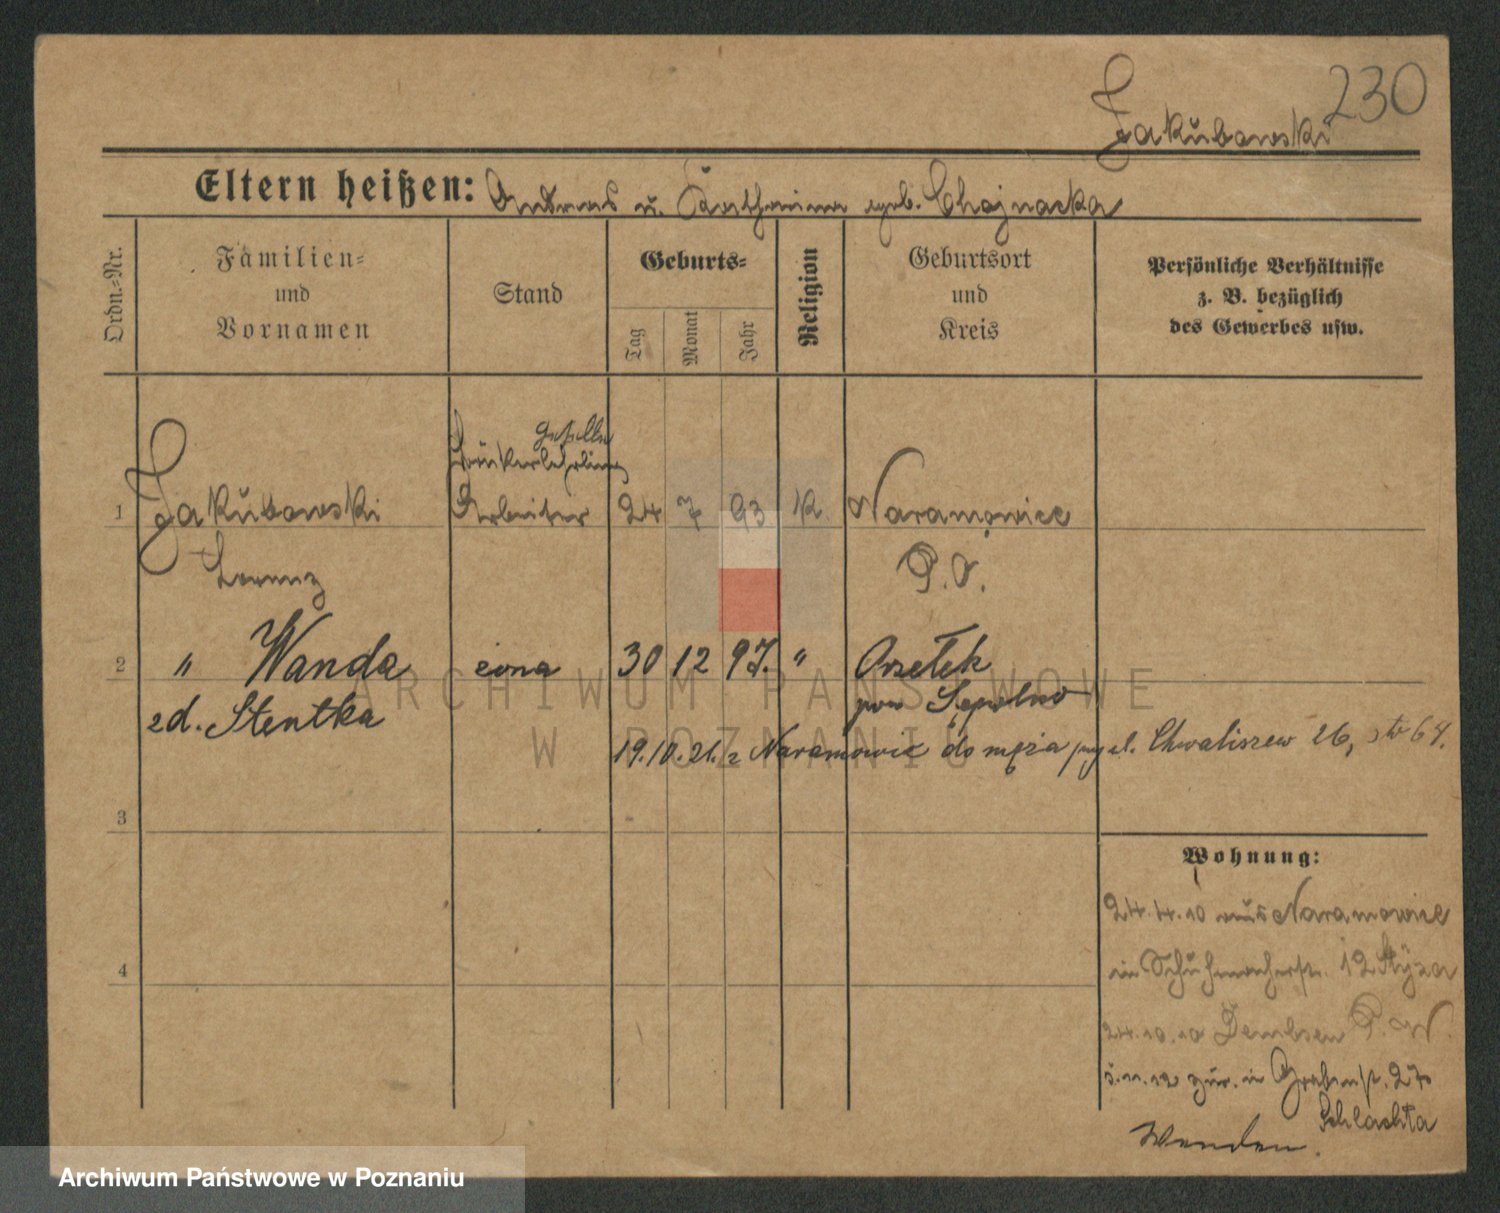 230
Jakubowski
Eltern heißen: Andreas u. Katharina geb. Chojnacka
Ordn.-Nr.
Familien-
und
Vornamen
Stand
Geburts-
Tag
Monat
Jahr
Religion
Geburtsort
und
Kreis
Persönliche Verhältnisse
z. B. bezüglich
des Gewerbes usw.
geselle
lehrling
1 Jakubowski Arbeiter 24 7 93 K. Naramowice
Lorenz P. O.
2 " Wanda żona 30 12 97. " Orzełek
zd. Stentka pow Sępolno
19.10.21. z Naramowic do męża przy ul. Chwaliszew 26, 64.
3
Wohnung:
24.4.10 aus Naramowice
in Schuhmacherstr. 12 Styza
4
24.10.10 Dembsen P. W.
5.11.12 zur. in Grabenstr. 27
Schlachta
Wenden.
ARCHIWUM PAŃSTWOWE
W POZNANIU
Archiwum Państwowe w Poznaniu